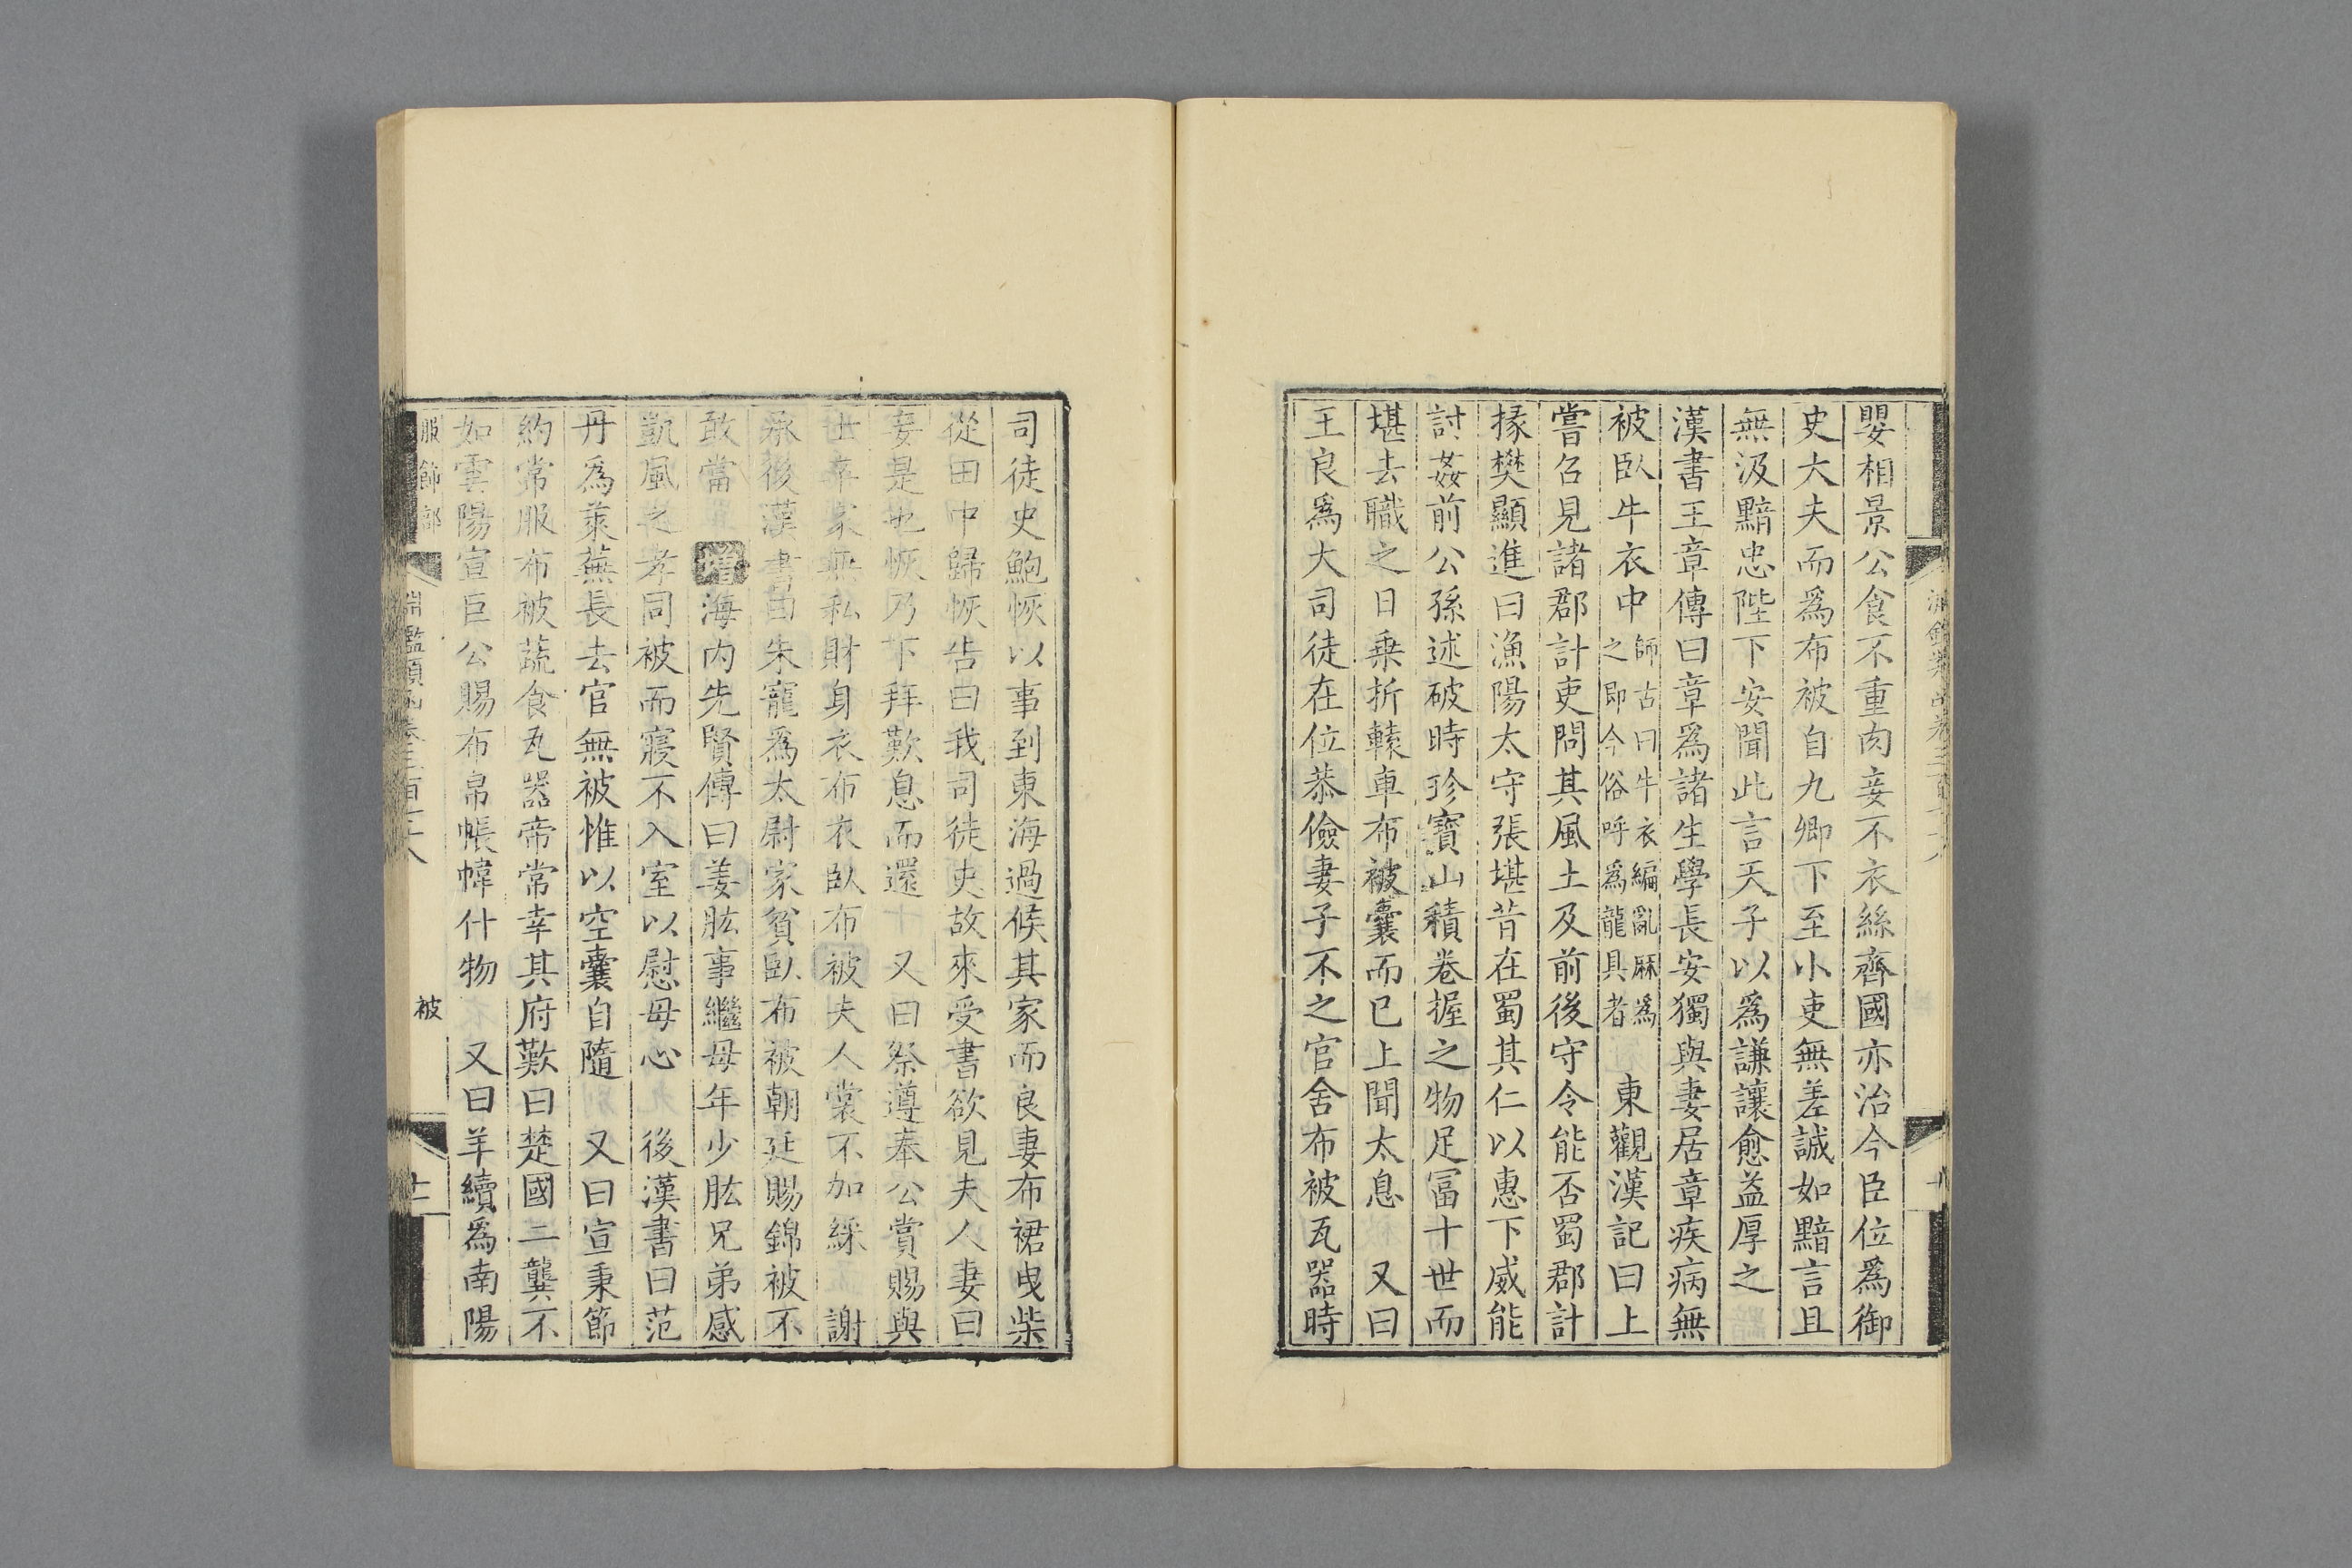 嬰相景公食不重肉妾不衣絲齊國亦治今臣位爲御
史大夫而爲布被自九卿下至小吏無差誠如黯言且
無汲黯忠陛下安聞此言天子以爲謙讓愈益厚之
漢書王章傳曰章爲諸生學長安獨與妻居章疾病無
被臥牛衣中師古曰牛衣編亂麻爲之即今俗呼爲龍具者 東觀漢記曰上
嘗召見諸郡計吏問其風土及前後守令能否蜀郡計
掾樊顯進曰漁陽太守張堪昔在蜀其仁以惠下威能
討姦前公孫述破時珍寶山積卷握之物足富十世而
堪去職之日乗折轅車布被囊而已上聞太息 又曰
王良爲大司徒在位恭儉妻子不之官舍布被瓦器時
司徒史鮑恢以事到東海過候其家而良妻布裙曳柴
從田中歸恢告曰我司徒吏故來受書欲見夫人妻曰
妾是也恢乃下拜歎息而還 又曰祭遵奉公賞賜與
士卒家無私財身衣布衣臥布被夫人裳不加綵 謝
承後漢書曰朱寵爲太尉家貧臥布被朝廷賜錦被不
敢當 增海内先賢傳曰姜肱事繼母年少肱兄弟感
凱風之孝同被而寢不入室以慰母心 後漢書曰范
丹爲萊蕪長去官無被惟以空囊自隨 又曰宣秉節
約常服布被蔬食瓦器帝常幸其府歎曰楚國二龔不
如雲陽宣巨公賜布帛帳幃什物 又曰羊續爲南陽
服飾部 淵鑑類函卷三百七十八 被 十二